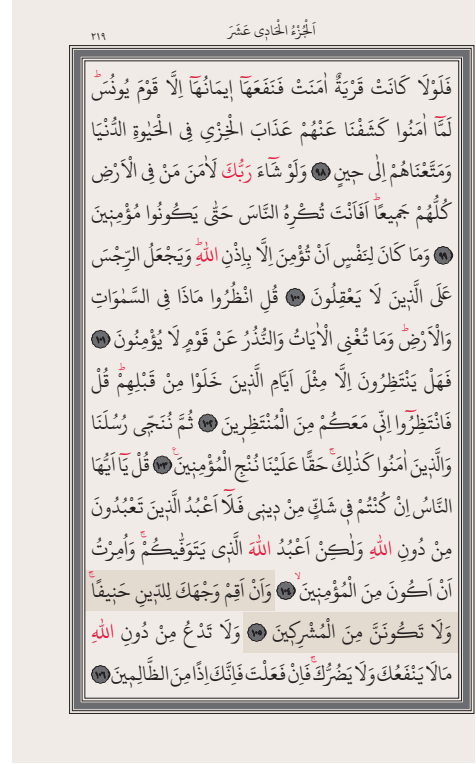 اَلْجُزْءُ الْحَادِى عَشَرَ
٢١٩
فَلَوْلَا كَانَتْ قَرْيَةٌ اٰمَنَتْ فَنَفَعَهَٓا اِيمَانُهَٓا اِلَّا قَوْمَ يُونُسَۜ
لَمَّٓا اٰمَنُوا كَشَفْنَا عَنْهُمْ عَذَابَ الْخِزْيِ فِى الْحَيٰوةِ الدُّنْيَا
وَمَتَّعْنَاهُمْ اِلٰى ح۪ينٍ ٩٨ وَلَوْ شَٓاءَ رَبُّكَ لَاٰمَنَ مَنْ فِى الْاَرْضِ
كُلُّهُمْ جَم۪يعًاۜ اَفَاَنْتَ تُكْرِهُ النَّاسَ حَتّٰى يَكُونُوا مُؤْمِن۪ينَ
٩٩ وَمَا كَانَ لِنَفْسٍ اَنْ تُؤْمِنَ اِلَّا بِاِذْنِ اللّٰهِۜ وَيَجْعَلُ الرِّجْسَ
عَلَى الَّذ۪ينَ لَا يَعْقِلُونَ ١٠٠ قُلِ انْظُرُوا مَاذَا فِى السَّمٰوَاتِ
وَالْاَرْضِۜ وَمَا تُغْنِى الْاٰيَاتُ وَالنُّذُرُ عَنْ قَوْمٍ لَا يُؤْمِنُونَ ١٠١
فَهَلْ يَنْتَظِرُونَ اِلَّا مِثْلَ اَيَّامِ الَّذ۪ينَ خَلَوْا مِنْ قَبْلِهِمْۜ قُلْ
فَانْتَظِرُٓوا اِنّ۪ى مَعَكُمْ مِنَ الْمُنْتَظِر۪ينَ ١٠٢ ثُمَّ نُنَجّ۪ى رُسُلَنَا
وَالَّذ۪ينَ اٰمَنُوا كَذٰلِكَۚ حَقًّا عَلَيْنَا نُنْجِ الْمُؤْمِن۪ينَ۟ ١٠٣ قُلْ يَٓا اَيُّهَا
النَّاسُ اِنْ كُنْتُمْ ف۪ى شَكٍّ مِنْ د۪ين۪ى فَلَٓا اَعْبُدُ الَّذ۪ينَ تَعْبُدُونَ
مِنْ دُونِ اللّٰهِ وَلٰكِنْ اَعْبُدُ اللّٰهَ الَّذ۪ى يَتَوَفّٰيكُمْۚ وَاُمِرْتُ
اَنْ اَكُونَ مِنَ الْمُؤْمِن۪ينَۙ ١٠٤ وَاَنْ اَقِمْ وَجْهَكَ لِلدّ۪ينِ حَن۪يفًاۚ
وَلَا تَكُونَنَّ مِنَ الْمُشْرِك۪ينَ ١٠٥ وَلَا تَدْعُ مِنْ دُونِ اللّٰهِ
مَالَا يَنْفَعُكَ وَلَا يَضُرُّكَۚ فَاِنْ فَعَلْتَ فَاِنَّكَ اِذًا مِنَ الظَّالِم۪ينَ ١٠٦